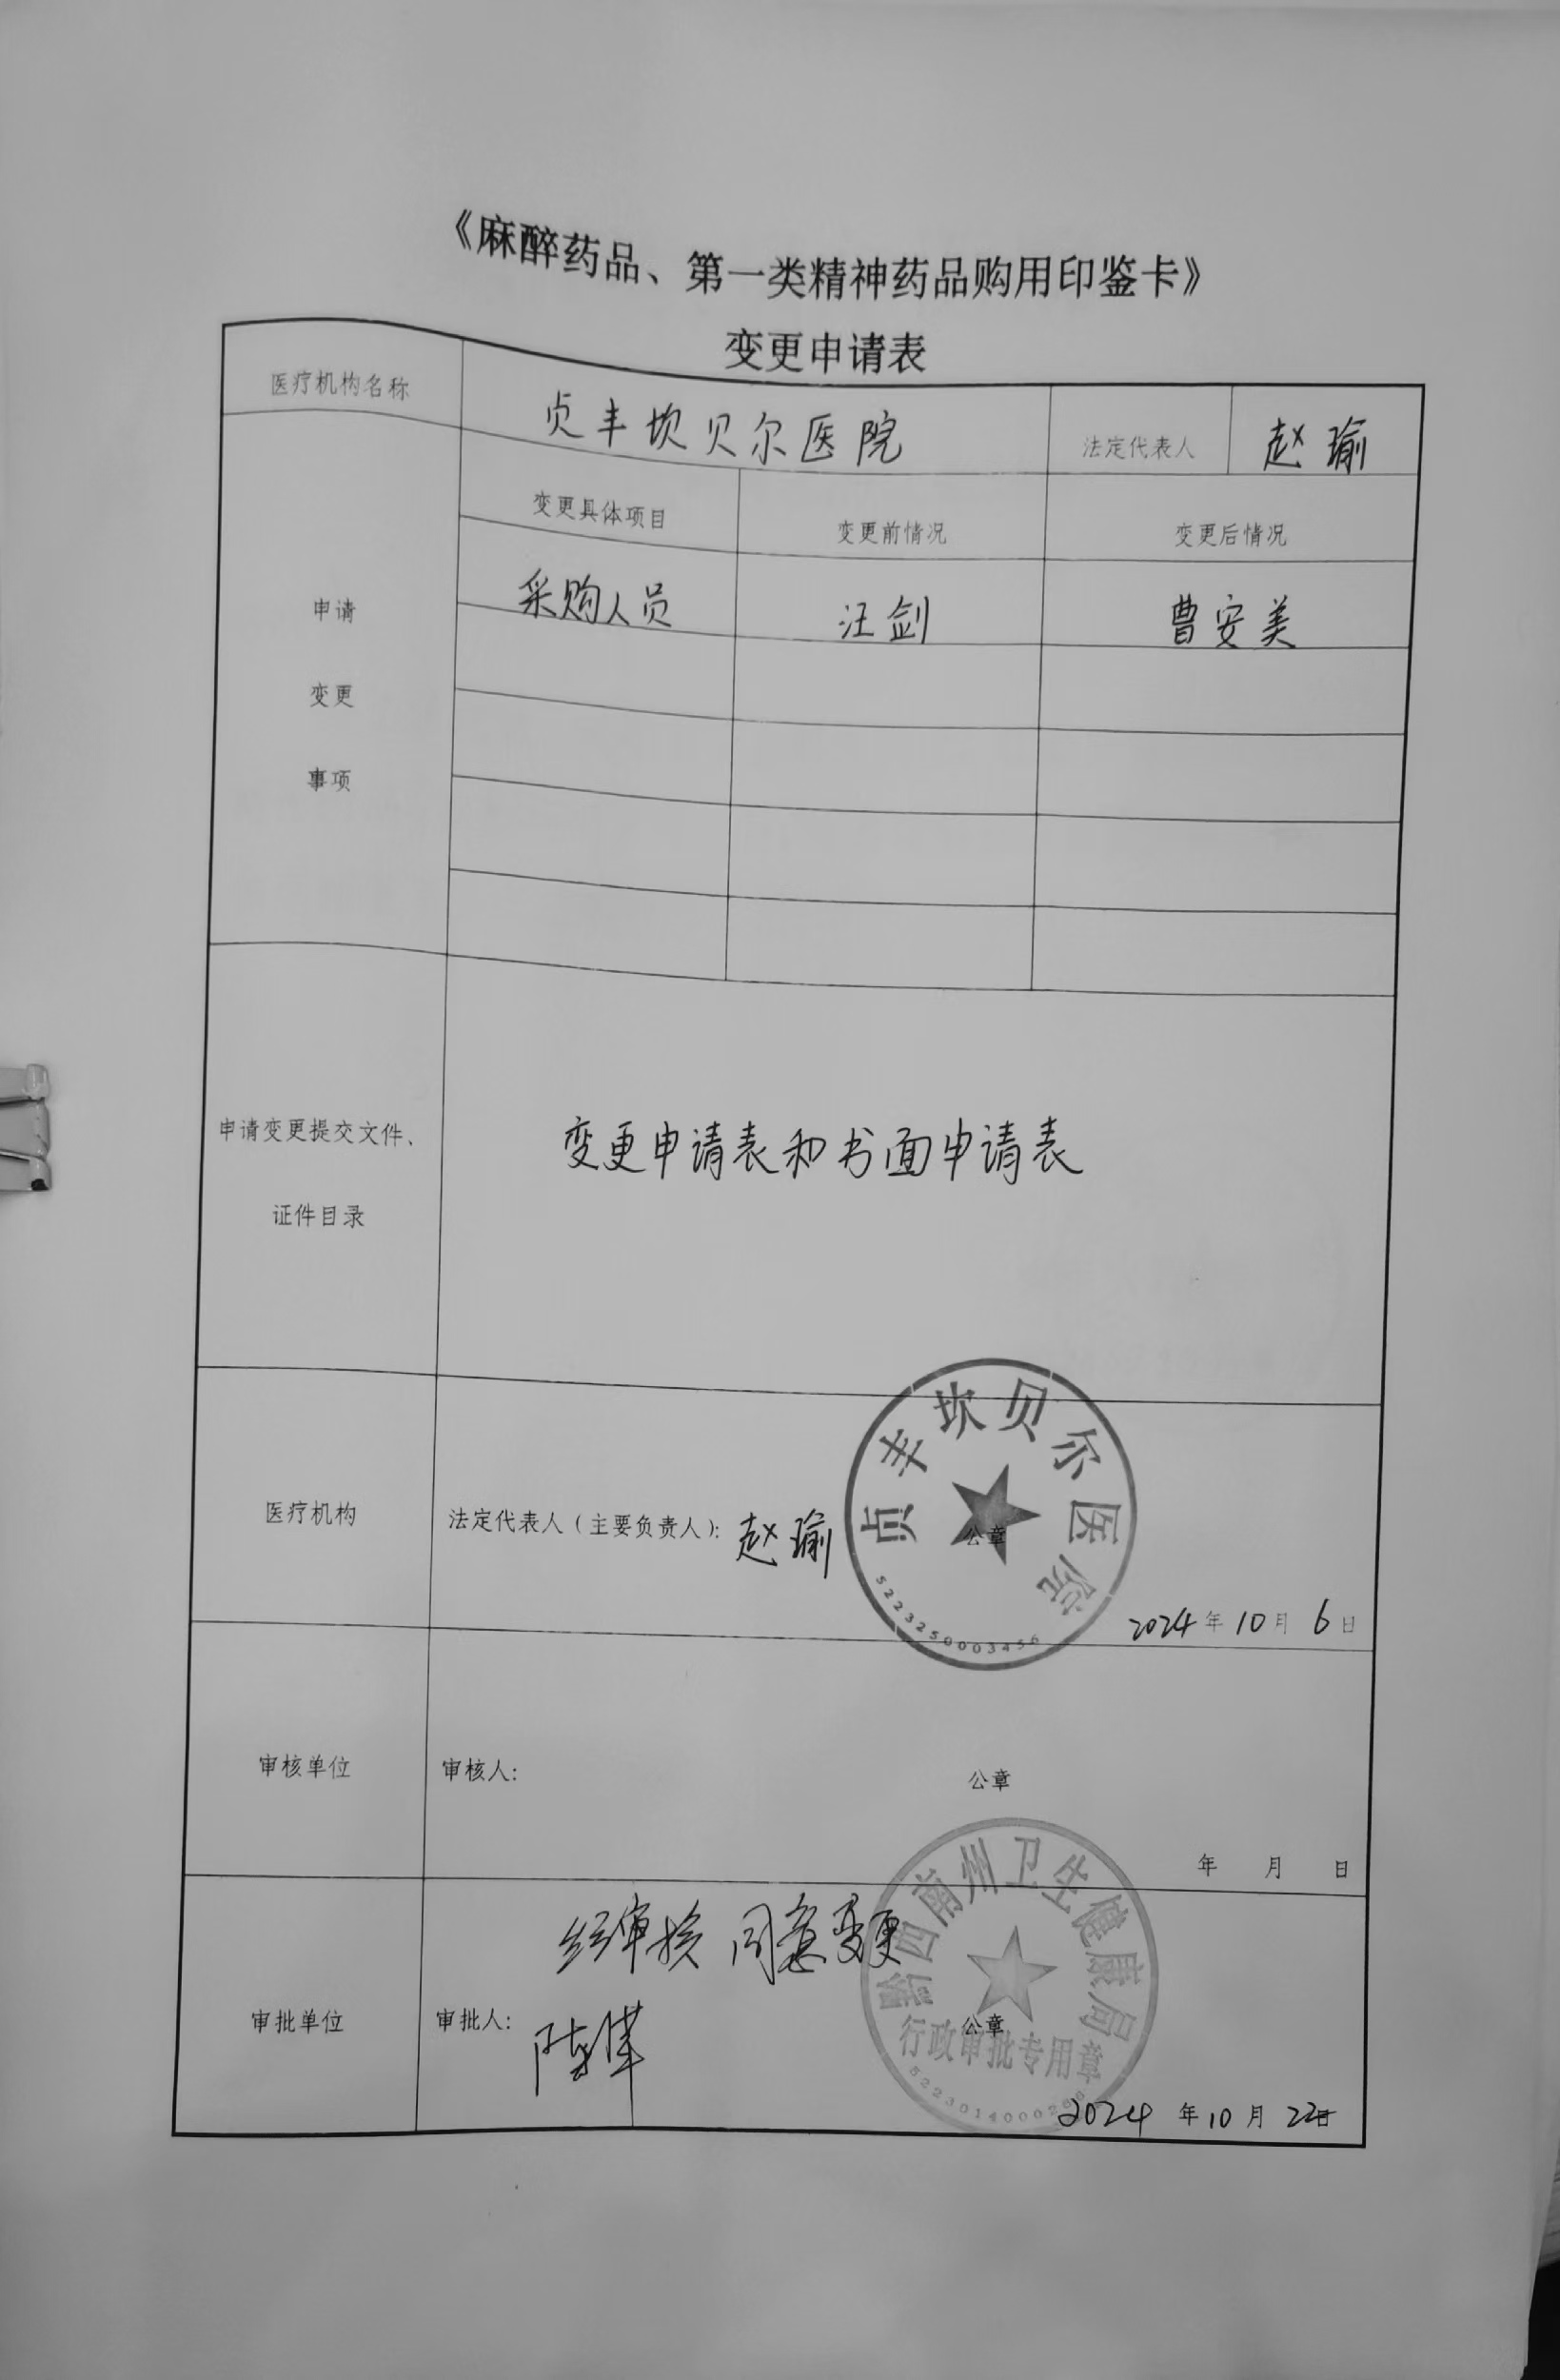 《麻醉药品、第一类精神药品购用印鉴卡》
变更申请表
医疗机构名称 贞丰坎贝尔医院 法定代表人 赵瑜
申请
变更
事项
变更具体项目 变更前情况 变更后情况
采购人员 汪剑 曹安美
申请变更提交文件、
证件目录
变更申请表和书面申请表
医疗机构 法定代表人(主要负责人): 赵瑜 公章
贞丰坎贝尔医院
5223250003456
2024年10月6日
审核单位 审核人: 公章
年 月 日
经审核 同意变更
审批单位 审批人: 公章
黔西南州卫生健康局
行政审批专用章
2024年10月22日